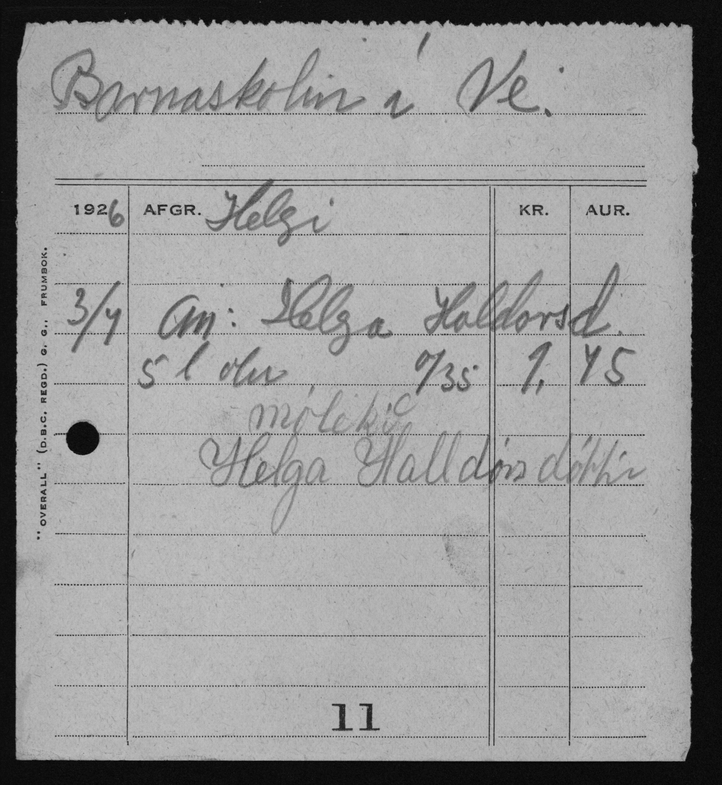 Barnaskolin í Ve.
1926 AFGR. Helgi KR. AUR.
3/7 An: Helga Haldorsd.
5 l olía º/35 1,75
mótekið
Helga Halldórsdóttir
11
"OVERALL" (D.B.C. REGD.) G. G., FRUMBOK.